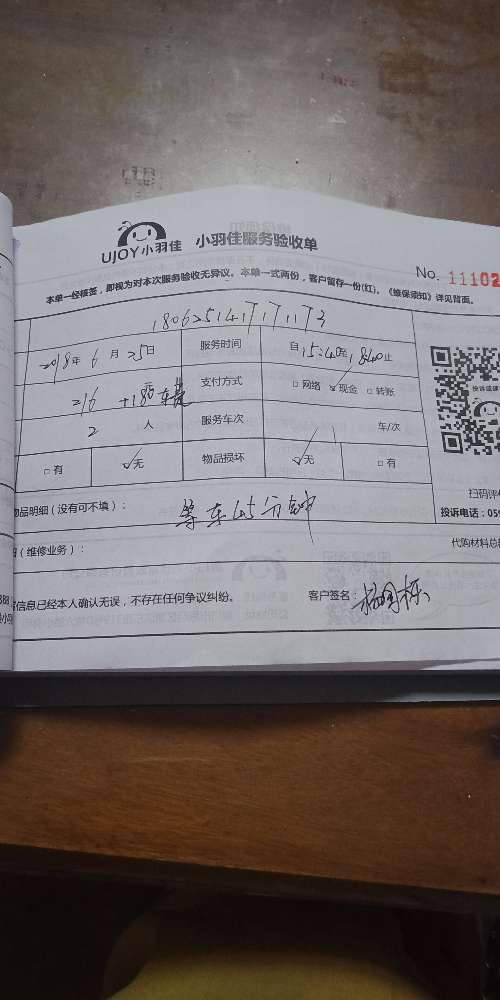 UJOY小羽佳 小羽佳服务验收单
No. 11102
本单一经核签，即视为对本次服务验收无异议。本单一式两份，客户留存一份(红)。《维保须知》详见背面。
2018年6月25日 服务时间 自15:40至1840止
216元 +180车费 支付方式 □网络 ☑现金 □转账
2 人 服务车次 车/次
□有 ☑无 物品损坏 ☑无 □有
扫码评价
物品明细（没有可不填）： 等车45分钟
投诉电话：059
（维修业务）：
代购材料总额
信息已经本人确认无误，不存在任何争议纠纷。 客户签名：